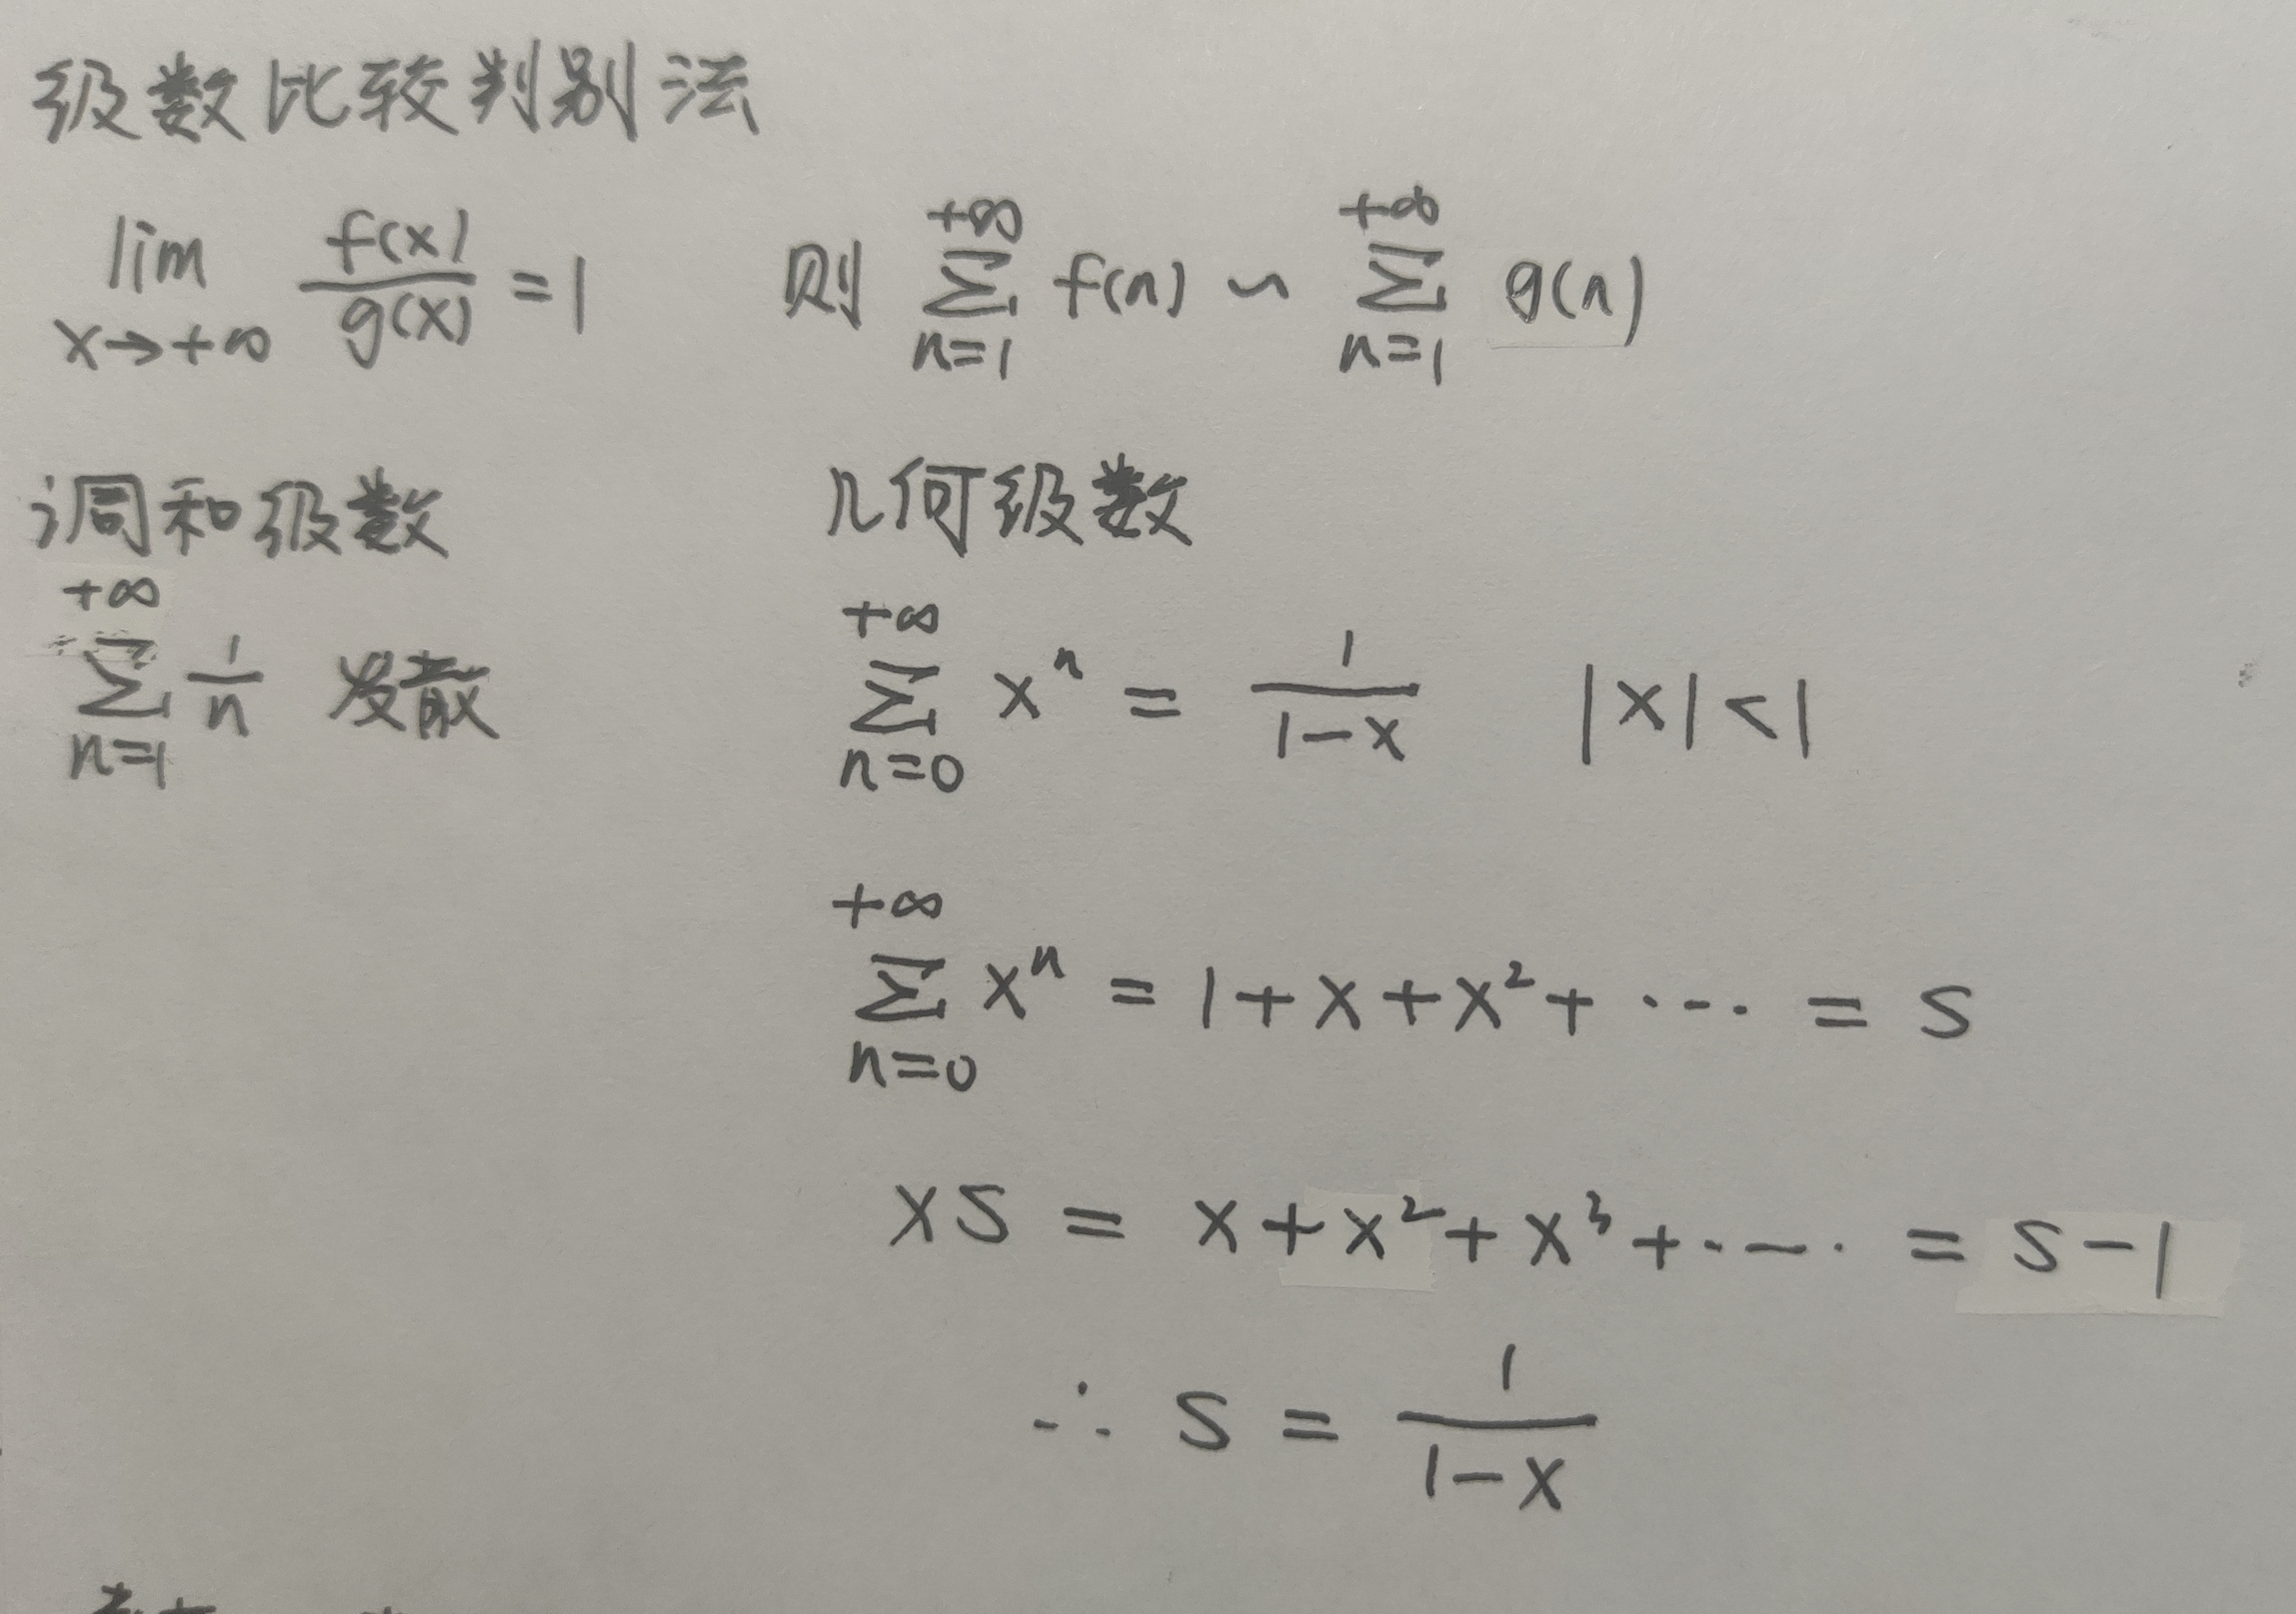 级数比较判别法
lim x→+∞ f(x)/g(x) = 1 则 +∞ ∑ n=1 f(n) ∽ +∞ ∑ n=1 g(n)
调和级数 几何级数
+∞ ∑ n=1 1/n 发散 +∞ ∑ n=0 xⁿ = 1/(1-x) |x|<1
+∞ ∑ n=0 xⁿ = 1+x+x²+ ··· = S
xS = x+x²+x³+··· = S-1
∴ S = 1/(1-x)